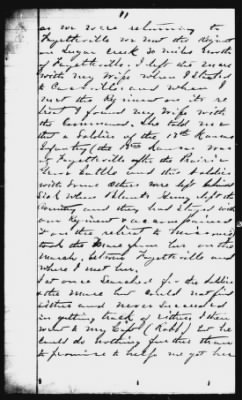 11
as we were returning to
Fayetteville we met the Regiment
on Sugar Creek 30 miles North
of Fayetteville. I left the mare
with my wife when I started
to Cassville and when I
met the Regiment on its re
treat I found my wife with
the Command. She told me
that a Soldier of the 13th Kansas
Infantry (the 13th Kansas was
at Fayetteville after the Prairie
Grove battle and this Soldier
with some others were left behind
sick when Blunt's Army left the
Country and they had stayed with
our Regiment &
it on the retreat to Missouri)
took the mare from her on the
march, between Fayetteville and
where I met her.
I at once searched for the soldier
& the mare but could not find
either and never succeeded
in getting track of either. I then
went to my Capt (Robb) but he
could do nothing further than
to promise to help me get her